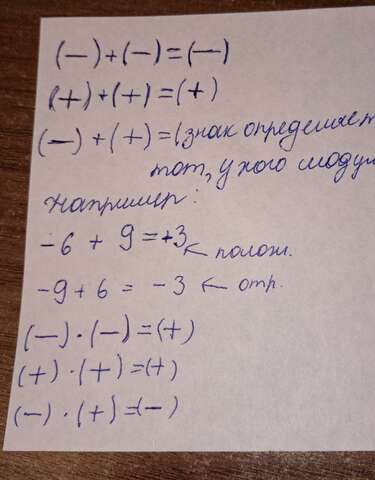 (−)+(−)=(−)
(+)+(+)=(+)
(−)+(+)=(знак определяет
тот, у кого модул
Например:
-6 + 9 = +3 ← полож.
-9 + 6 = -3 ← отр.
(−)·(−)=(+)
(+)·(+)=(+)
(−)·(+)=(−)